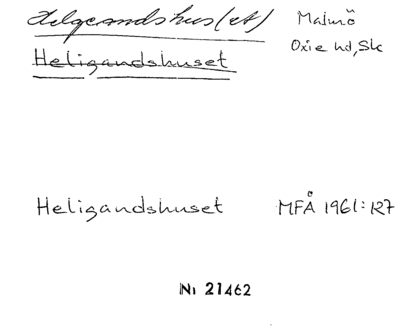 Helgeandshus(et) Malmö
Oxie hd, Sk
Heligandshuset
Heligandshuset MFÅ 1961:127
Nr 21462